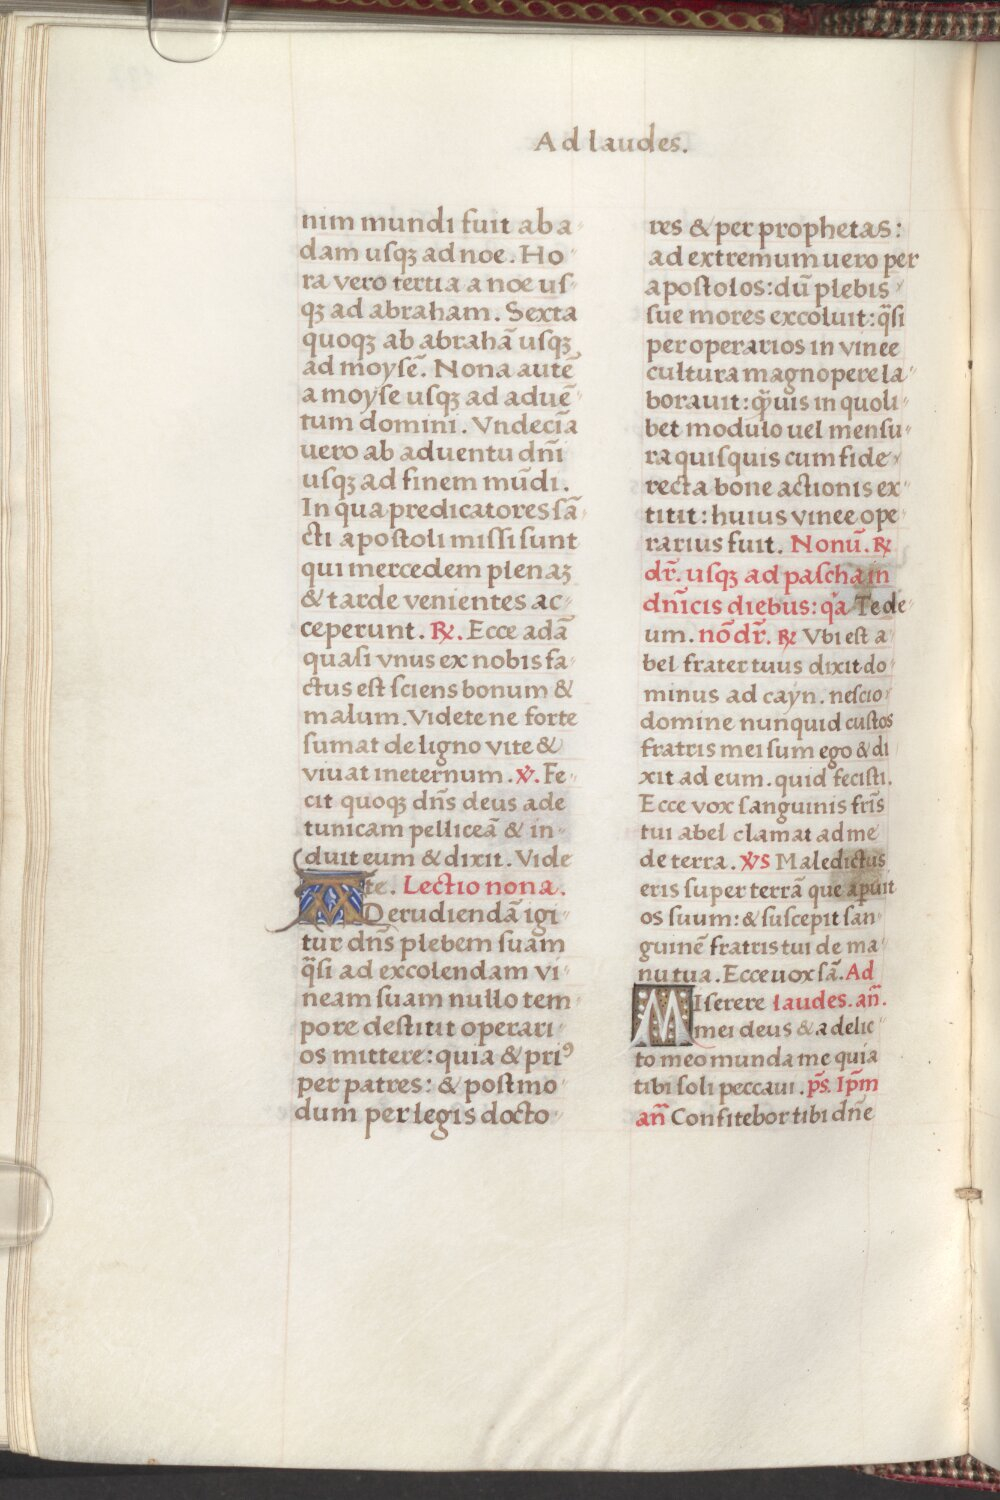 Ad laudes.
nim mundi fuit ab a
dam usqꝫ ad noe. Ho
ra vero tertia a noe us
qꝫ ad abraham. Sexta
quoqꝫ ab abrahā usqꝫ
ad moysē. Nona autē
a moyse usqꝫ ad aduē
tum domini. Vndecīa
uero ab aduentu dn̄i
usqꝫ ad finem mūdi.
In qua predicatores sā
cti apostoli missi sunt
qui mercedem plenaꝫ
& tarde venientes ac
ceperunt. ℟. Ecce adā
quasi vnus ex nobis fa
ctus est sciens bonum &
malum. Videte ne forte
sumat de ligno vite &
viuat ineternum. ℣. Fe
cit quoqꝫ dn̄s deus ade
tunicam pelliceā & in
duit eum & dixit. Vide
te. Lectio nona.
AD erudiendā igi
tur dn̄s plebem suam
q̄si ad excolendam vi
neam suam nullo tem
pore destitit operari
os mittere: quia & priꝰ
per patres: & postmo
dum per legis docto
res & per prophetas:
ad extremum uero per
apostolos: dū plebis
sue mores excoluit: q̄si
per operarios in vinee
cultura magnopere la
borauit: q̄uis in quoli
bet modulo uel mensu
ra quisquis cum fide
recta bone actionis ex
titit: huius vinee ope
rarius fuit. Nonū. ℟
dr̄. usqꝫ ad pascha in
dn̄icis diebus: qa Te de
um. nō dr̄. ℟ Vbi est a
bel frater tuus dixit do
minus ad cayn. nescio
domine nunquid custos
fratris mei sum ego & di
xit ad eum. quid fecisti.
Ecce vox sanguinis fr̄is
tui abel clamat ad me
de terra. ℣s Maledictus
eris super terrā que apuit
os suum: & suscepit san
guinē fratris tui de ma
nu tua. Ecce uox sā. Ad
MIserere laudes. an̄.
mei deus & a delic
to meo munda me quia
tibi soli peccaui. ps̄. Ip̄m
an̄ Confitebor tibi dn̄e